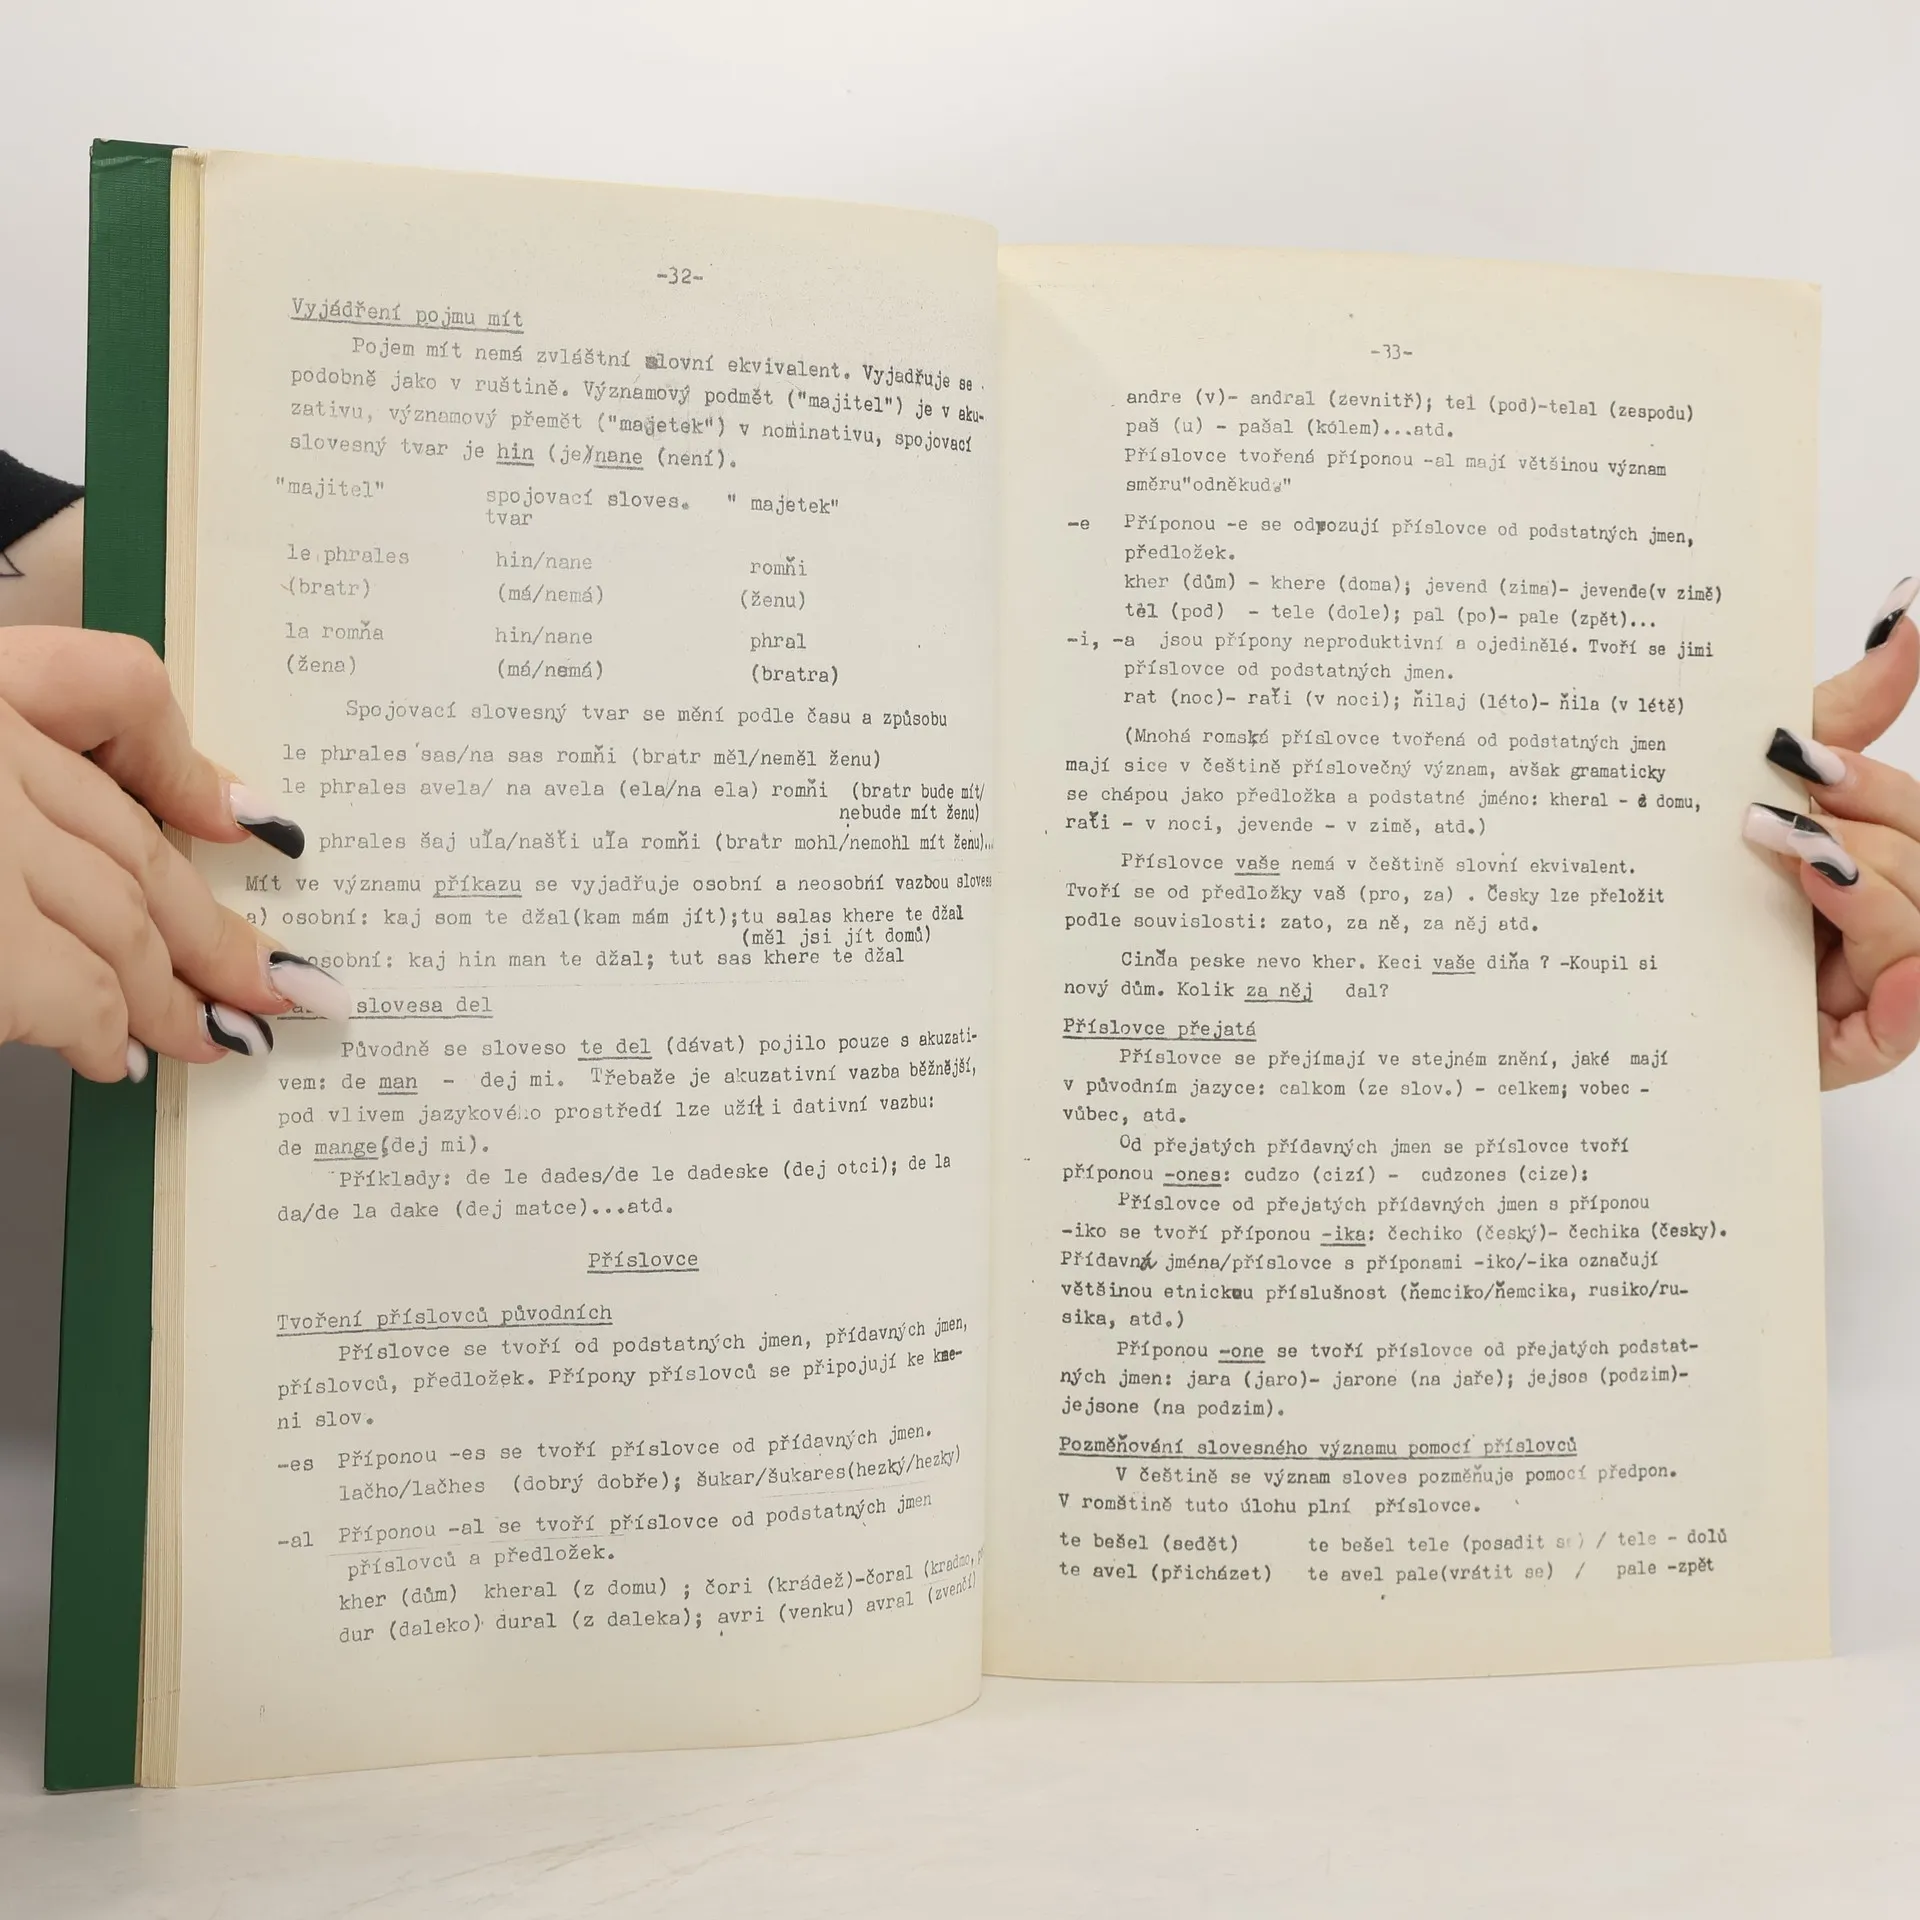 -32-
Vyjádření pojmu mít
Pojem mít nemá zvláštní slovní ekvivalent. Vyjadřuje se
podobně jako v ruštině. Významový podmět ("majitel") je v aku-
zativu, významový přemět ("majetek") v nominativu, spojovací
slovesný tvar je hin (je)/nane (není).
"majitel" spojovací sloves. " majetek"
tvar
le phrales hin/nane romňi
(bratr) (má/nemá) (ženu)
la romňa hin/nane phral
(žena) (má/nemá) (bratra)
Spojovací slovesný tvar se mění podle času a způsobu
le phrales sas/na sas romňi (bratr měl/neměl ženu)
le phrales avela/ na avela (ela/na ela) romňi (bratr bude mít/
nebude mít ženu)
phrales šaj uľa/našťi uľa romňi (bratr mohl/nemohl mít ženu)...
Mít ve významu příkazu se vyjadřuje osobní a neosobní vazbou sloves
a) osobní: kaj som te džal(kam mám jít);tu salas khere te džal
(měl jsi jít domů)
osobní: kaj hin man te džal; tut sas khere te džal
slovesa del
Původně se sloveso te del (dávat) pojilo pouze s akuzati-
vem: de man - dej mi. Třebaže je akuzativní vazba běžnější,
pod vlivem jazykového prostředí lze užít i dativní vazbu:
de mange(dej mi).
Příklady: de le dades/de le dadeske (dej otci); de la
da/de la dake (dej matce)...atd.
Příslovce
Tvoření příslovců původních
Příslovce se tvoří od podstatných jmen, přídavných jmen,
příslovců, předložek. Přípony příslovců se připojují ke kme-
ni slov.
-es Příponou -es se tvoří příslovce od přídavných jmen.
lačho/lačhes (dobrý dobře); šukar/šukares(hezký/hezky)
-al Příponou -al se tvoří příslovce od podstatných jmen
příslovců a předložek.
kher (dům) kheral (z domu) ; čori (krádež)-čoral (kradmo,
dur (daleko) dural (z daleka); avri (venku) avral (zvenčí)
-33-
andre (v)- andral (zevnitř); tel (pod)-telal (zespodu)
paš (u) - pašal (kólem)...atd.
Příslovce tvořená příponou -al mají většinou význam
směru"odněkud"
-e Příponou -e se odvozují příslovce od podstatných jmen,
předložek.
kher (dům) - khere (doma); jevend (zima)- jevende(v zimě)
tel (pod) - tele (dole); pal (po)- pale (zpět)...
-i, -a jsou přípony neproduktivní a ojedinělé. Tvoří se jimi
příslovce od podstatných jmen.
rat (noc)- raťi (v noci); ňilaj (léto)- ňila (v létě)
(Mnohá romská příslovce tvořená od podstatných jmen
mají sice v češtině příslovečný význam, avšak gramaticky
se chápou jako předložka a podstatné jméno: kheral - z domu,
raťi - v noci, jevende - v zimě, atd.)
Příslovce vaše nemá v češtině slovní ekvivalent.
Tvoří se od předložky vaš (pro, za) . Česky lze přeložit
podle souvislosti: zato, za ně, za něj atd.
Cinďa peske nevo kher. Keci vaše diňa ? -Koupil si
nový dům. Kolik za něj dal?
Příslovce přejatá
Příslovce se přejímají ve stejném znění, jaké mají
v původním jazyce: calkom (ze slov.) - celkem; vobec -
vůbec, atd.
Od přejatých přídavných jmen se příslovce tvoří
příponou -ones: cudzo (cizí) - cudzones (cize):
Příslovce od přejatých přídavných jmen s příponou
-iko se tvoří příponou -ika: čechiko (český)- čechika (česky).
Přídavná jména/příslovce s příponami -iko/-ika označují
většinou etnickou příslušnost (ňemciko/ňemcika, rusiko/ru-
sika, atd.)
Příponou -one se tvoří příslovce od přejatých podstat-
ných jmen: jara (jaro)- jarone (na jaře); jejsos (podzim)-
jejsone (na podzim).
Pozměňování slovesného významu pomocí příslovců
V češtině se význam sloves pozměňuje pomocí předpon.
V romštině tuto úlohu plní příslovce.
te bešel (sedět) te bešel tele (posadit se) / tele - dolů
te avel (přicházet) te avel pale(vrátit se) / pale -zpět